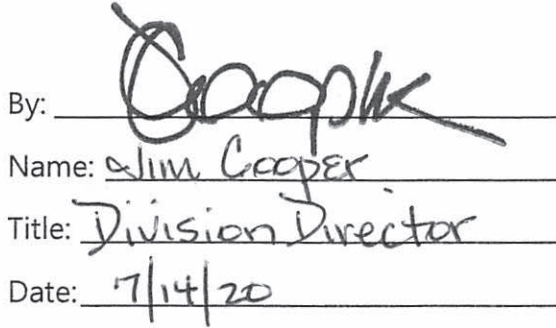 By: Cooper
Name: Jim Cooper
Title: Division Director
Date: 7/14/20